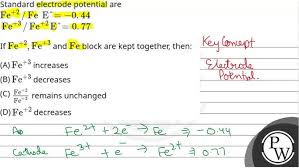 Standard electrode potential are
Fe⁺²/Fe E⁻ = −0.44
Fe⁺³/Fe⁺² E⁻ = 0.77
If Fe⁺², Fe⁺³ and Fe block are kept together, then:
(A) Fe⁺³ increases
(B) Fe⁺³ decreases
(C) Fe⁺²/Fe⁺³ remains unchanged
(D) Fe⁺² decreases
Key Concept
Electrode
Potential.
Fe²⁺ + 2e⁻ → Fe -0.44
Cathode Fe³⁺ + e⁻ → Fe²⁺ 0.77
P
W